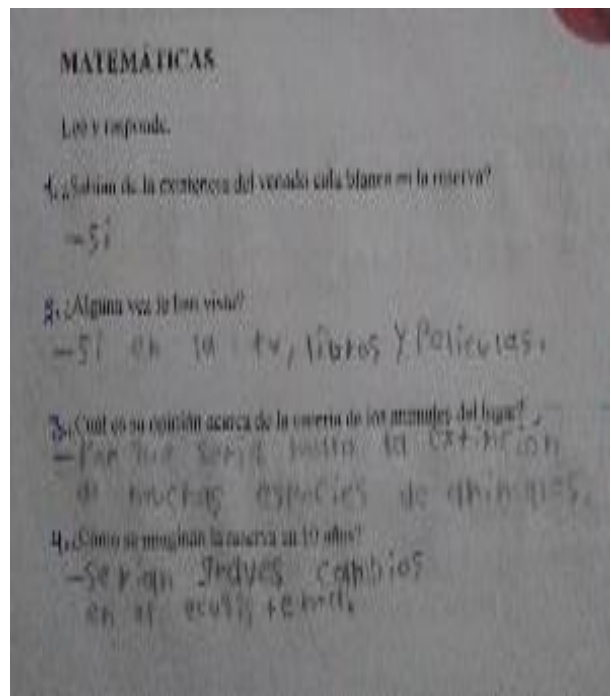 MATEMÁTICAS
Lee y responde.
1. ¿Sabían de la existencia del venado cola blanca en la reserva?
-Sí
2. ¿Alguna vez lo han visto?
-Sí en la tv, libros y Peliculas.
3. ¿Cuál es su opinión acerca de la cacería de los animales del lugar?
- sería la extincion
de muchas especies de animales.
4. ¿Cómo se imaginan la reserva en 10 años?
-Serian graves cambios
en el